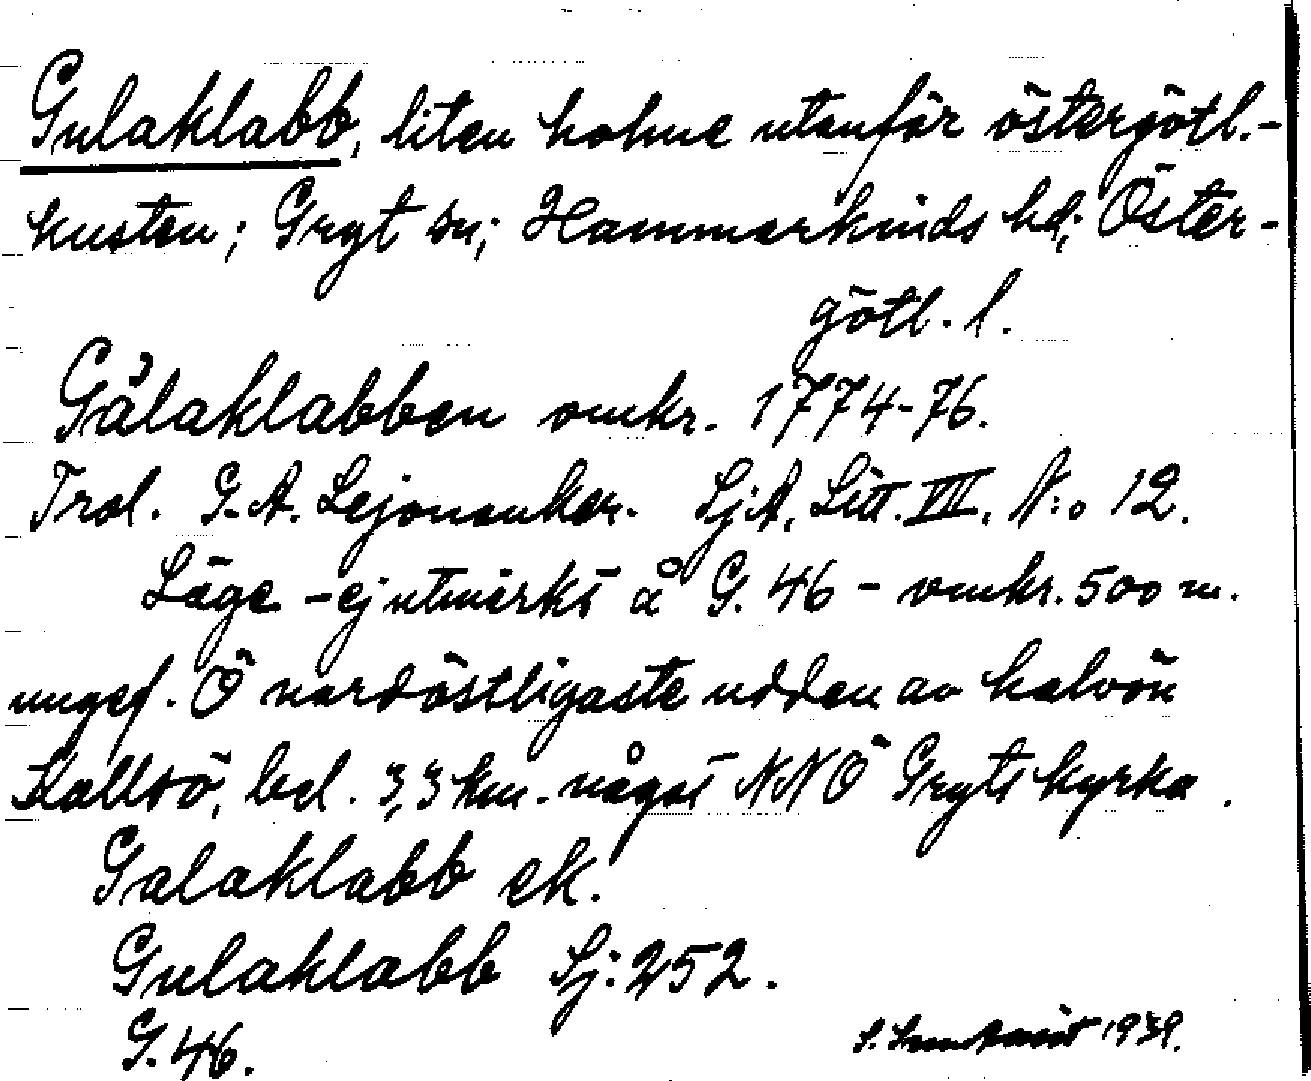 Gulaklabb, liten holme utanför östergötl.-
kusten; Gryt sn; Hammarkinds hd; Öster-
götl. l.
Gålaklabben omkr. 1774-76.
Trol. G.A. Lejonanker. SjA, Litt. VII, N:o 12.
Läge - ej utmärkt å G. 46 - omkr. 500 m.
ungef. Ö nordöstligaste udden av halvön
Kallsö, bel. 3,3 km. något NNÖ Gryts kyrka.
Galaklabb ek.
Gulaklabb Sj: 252.
G. 46.
S. 1939.